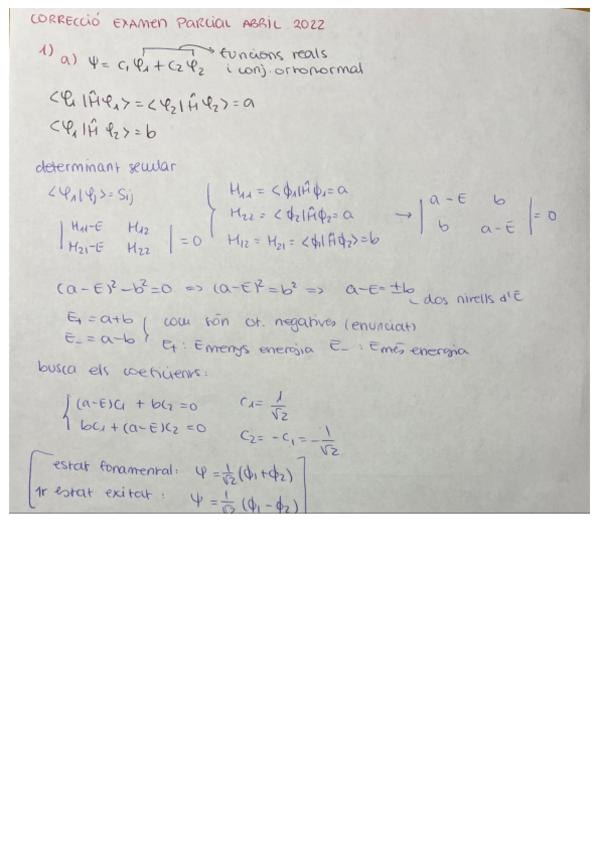 CORRECCIÓ EXAMEN PARCIAL ABRIL 2022
1) a) Ψ = c₁φ₁ + c₂φ₂ → funcions reals
i conj. ortonormal
⟨φ₁|Ĥφ₁⟩ = ⟨φ₂|Ĥφ₂⟩ = a
⟨φ₁|Ĥφ₂⟩ = b
determinant secular
⟨φ₁|φj⟩ = Sij
|H₁₁-E H₁₂|
|H₂₁-E H₂₂| = 0
{ H₁₁ = ⟨ϕ₁|Ĥϕ₁⟩ = a
H₂₂ = ⟨ϕ₂|Ĥϕ₂⟩ = a
H₁₂ = H₂₁ = ⟨ϕ₁|Ĥϕ₂⟩ = b
→ |a-E b|
|b a-E| = 0
(a-E)² - b² = 0 => (a-E)² = b² => a-E = ±b dos nivells d'E
E₊ = a+b } com són ct. negatives (enunciat)
E₋ = a-b } E₊: E menys energia E₋: E més energia
busca els coeficients:
{ (a-E)c₁ + bc₂ = 0 c₁ = 1/√2
bc₁ + (a-E)c₂ = 0 c₂ = -c₁ = -1/√2
estat fonamental: Ψ = 1/√2 (ϕ₁+ϕ₂)
1r estat exitat: Ψ = 1/√2 (ϕ₁-ϕ₂)